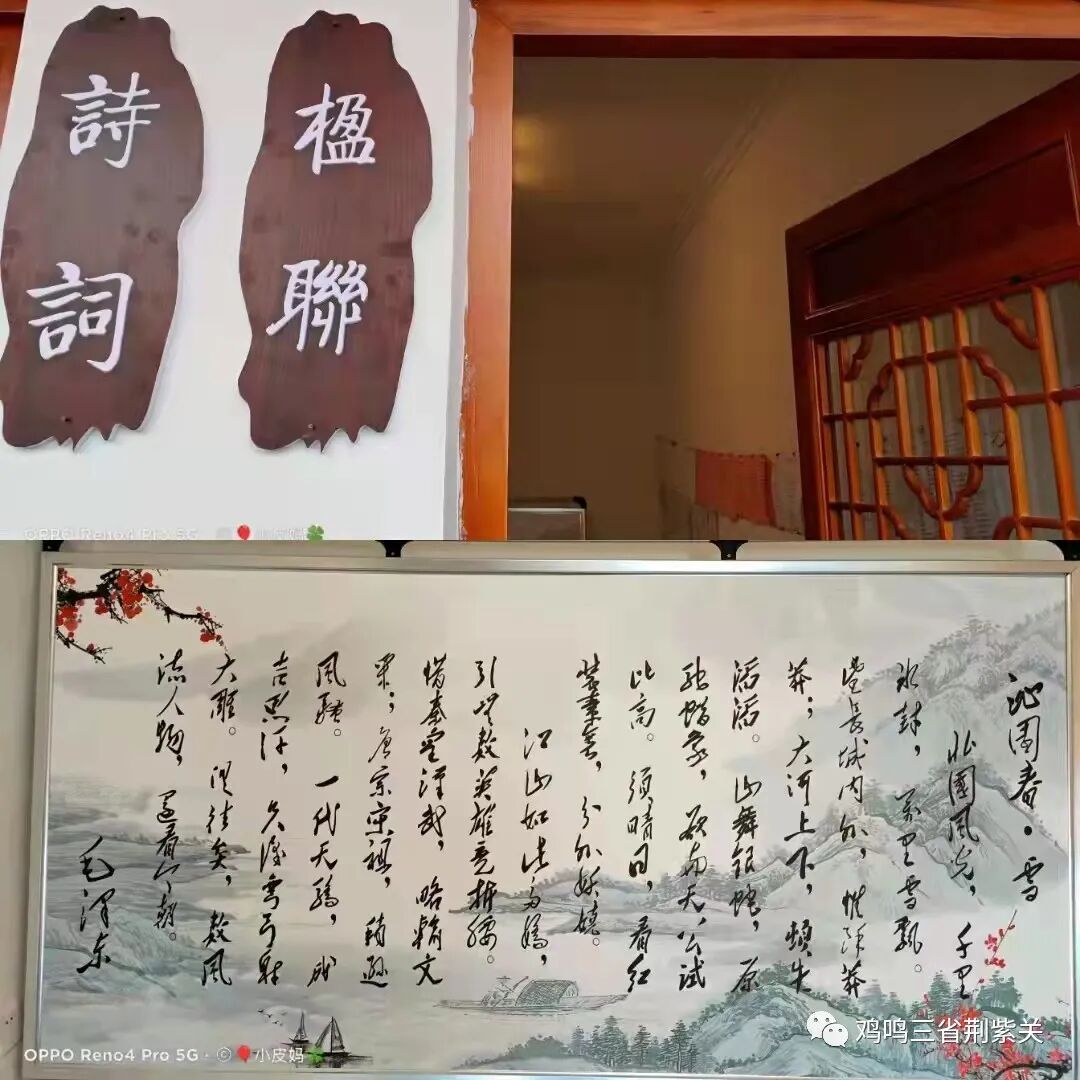 詩詞
楹聯
OPPO Reno4 Pro 5G 小皮妈
沁園春·雪
北國風光，千里
冰封，萬里雪飘。
望長城内外，惟馀莽
莽；大河上下，頓失
滔滔。山舞銀蛇，原
馳蜡象，欲與天公試
比高。须晴日，看红
装素裹，分外妖娆。
江山如此多嬌，
引無数英雄竞折腰。
惜秦皇漢武，略输文
采；唐宗宋祖，稍逊
风骚。一代天骄，成
吉思汗，只識弯弓射
大雕。俱往矣，数风
流人物，还看今朝。
毛澤东
OPPO Reno4 Pro 5G · ©小皮妈
鸡鸣三省荆紫关